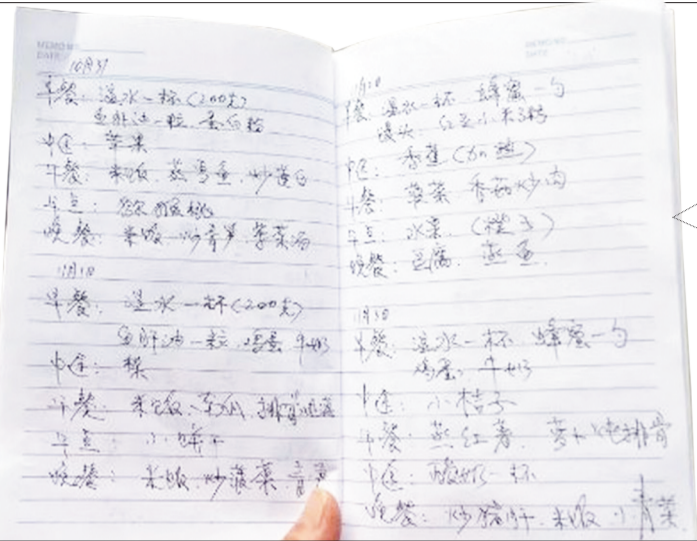 MEMO NO.
DATE
10月31
早餐：温水一杯（200克）
鱼肝油一粒、蛋白粉
中途：苹果
午餐：米饭、蒸鸡蛋、炒莲白
午点：猕猴桃
晚餐：米饭、炒青笋、紫菜汤
11月1日
早餐：温水一杯（200克）
鱼肝油一粒、鸡蛋 牛奶
中途：梨
午餐：米饭、排骨
午点：小饼干
晚餐：米饭、炒菠菜、青
MEMO NO.
DATE
11月2日
早餐：温水一杯 蜂蜜一勺
馒头、红豆小米粥
中途：香蕉（加热）
午餐：香菇炒肉
午点：水果（橙子）
晚餐：豆腐、蒸鱼
11月3日
早餐：温水一杯 蜂蜜一勺
鸡蛋、牛奶
中途：小桔子
午餐：蒸红薯、萝卜炖排骨
中途：酸奶一杯
晚餐：炒猪肝、米饭、小青菜